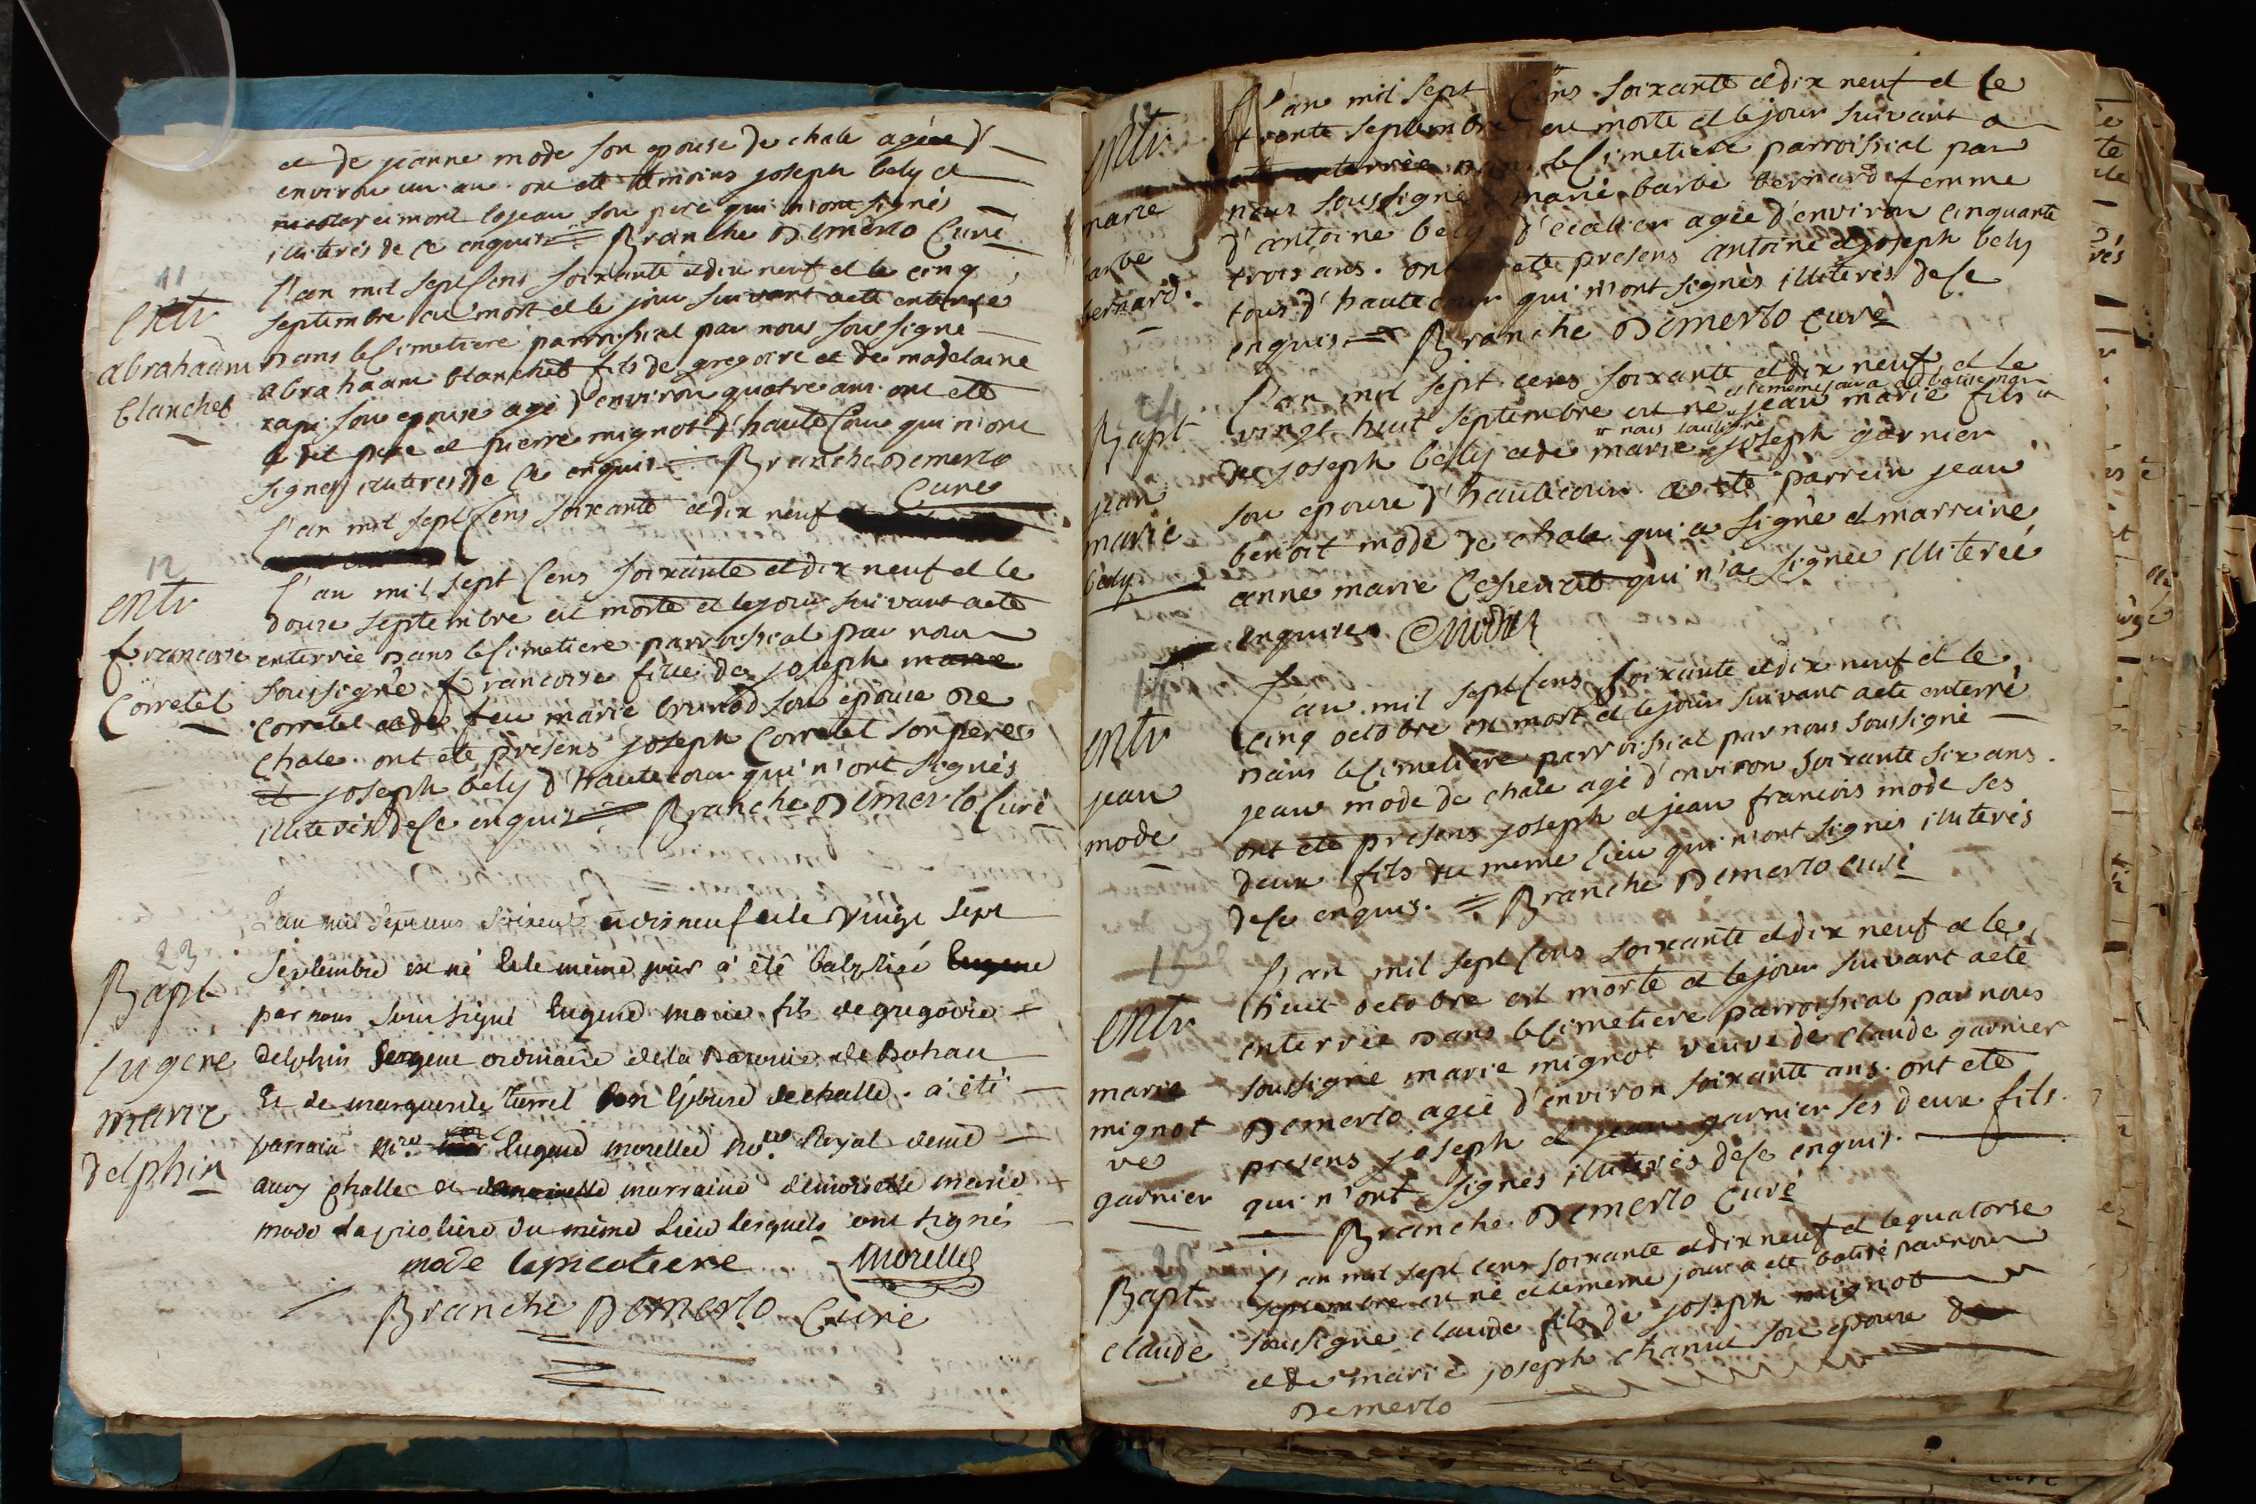 et de jeanne mode son epouse de chale agée d'
environ un an ont eté temoins joseph bely et
eimont lojeau son pere qui n'ont signés
illiterés de ce enquis Branche Demerlo Curé
11
Entr
abrahaam
blanchet
l'an mil sept Cens soixante et dix neuf et le cinq
septembre est mort et le jour suivant a eté enterré
Dans le Cimetiere parroissial par nous soussigné
abrahaam blanchet fils de gregoire et de madelaine
son epouse agé d'environ quatre ans ont eté
le dit pere et pierre mignot d'haute Cour qui n'ont
signés illiterés De Ce enquis Branche Demerlo
Curé
l'an mil sept Cens soixante et dix neuf
12
Entr
francoise
Corretel
l'an mil sept Cens soixante et dix neuf et le
douze septembre est morte et le jour suivant a eté
enterrée Dans le Cimetiere parroissial par nous
soussigné francoise fille de joseph marie
corretel et de feu marie brunod son epouse de
chale ont eté présens joseph Corretel son pere
et joseph bely d'hautecour qui n'ont signés
illiterés de Ce enquis Branche Demerlo Curé
23
Bapt
Eugene
marie
delphin
L'an mil sept cens soixante et dix neuf et le vingt sept
septembre est né et le même jour a été baptisé Eugene
par nous soussigné Eugene marie fils de gregoire
delphin sergent ordinaire de la Baronie de Dohan
Et de marguerite turrel son Epouse de challe. a été
parrain Mre. Eugene morellet No.re Royal demt
aux challe et demoiselle marraine demoiselle marie
mode la picoliere du même Lieu lesquels ont signés
mode lapicotiere Morellet
Branche Demerlo Curé
13
Entr
marie
barbe
bernard.
l'an mil sept Cens soixante et dix neuf et le
trente septembre est morte et le jour suivant a
eté enterrée dans le Cimetiere parroissial par
nous soussigné marie barbe bernard femme
d'antoine bely d'ecalier agée d'environ cinquante
trois ans. ont eté presens antoine et joseph bely
tous d'hautecour qui n'ont signés illiterés de Ce
enquis. Branche Demerlo Curé
24
Bapt
jean
marie
bely.
l'an mil sept cens soixante et dix neuf et le
et le meme jour a eté batisé par
vingt huit septembre est né jean marie fils
nous soussigné
de joseph bely et de marie joseph garnier
son epouse d'hautecour a eté parrein jean
benoit mode de chale qui a signé et marreine
anne marie qui n'a signée illiterée
enquise. Mode
14
Entr
jean
mode
l'an mil sept Cens soixante et dix neuf et le
cinq octobre est mort et le jour suivant a eté enterré
Dans le Cimetiere parroissial par nous soussigné
jean mode de chale agé d'environ soixante six ans.
ont eté presens joseph et jean francois mode ses
deux fils du meme lieu qui n'ont signés illiterés
de Ce enquis. Branche Demerlo Curé
15
Entr
marie
mignot
ve
garnier
l'an mil sept Cens soixante et dix neuf et le
huit octobre est morte et le jour suivant a eté
enterrée Dans le Cimetiere parroissial par nous
soussigné marie mignot veuve de claude garnier
Demerlo agée d'environ soixante ans. ont eté
presens joseph et jean garnier ses deux fils.
qui n'ont signés illiterés de Ce enquis.
Branche Demerlo Curé
25
Bapt
claude
l'an mil sept cens soixante et dix neuf et le quatorse
septembre est né et le meme jour a eté batisé par nous
soussigné claude fils de joseph mignot
et de marie joseph chanut son epouse de
Demerlo